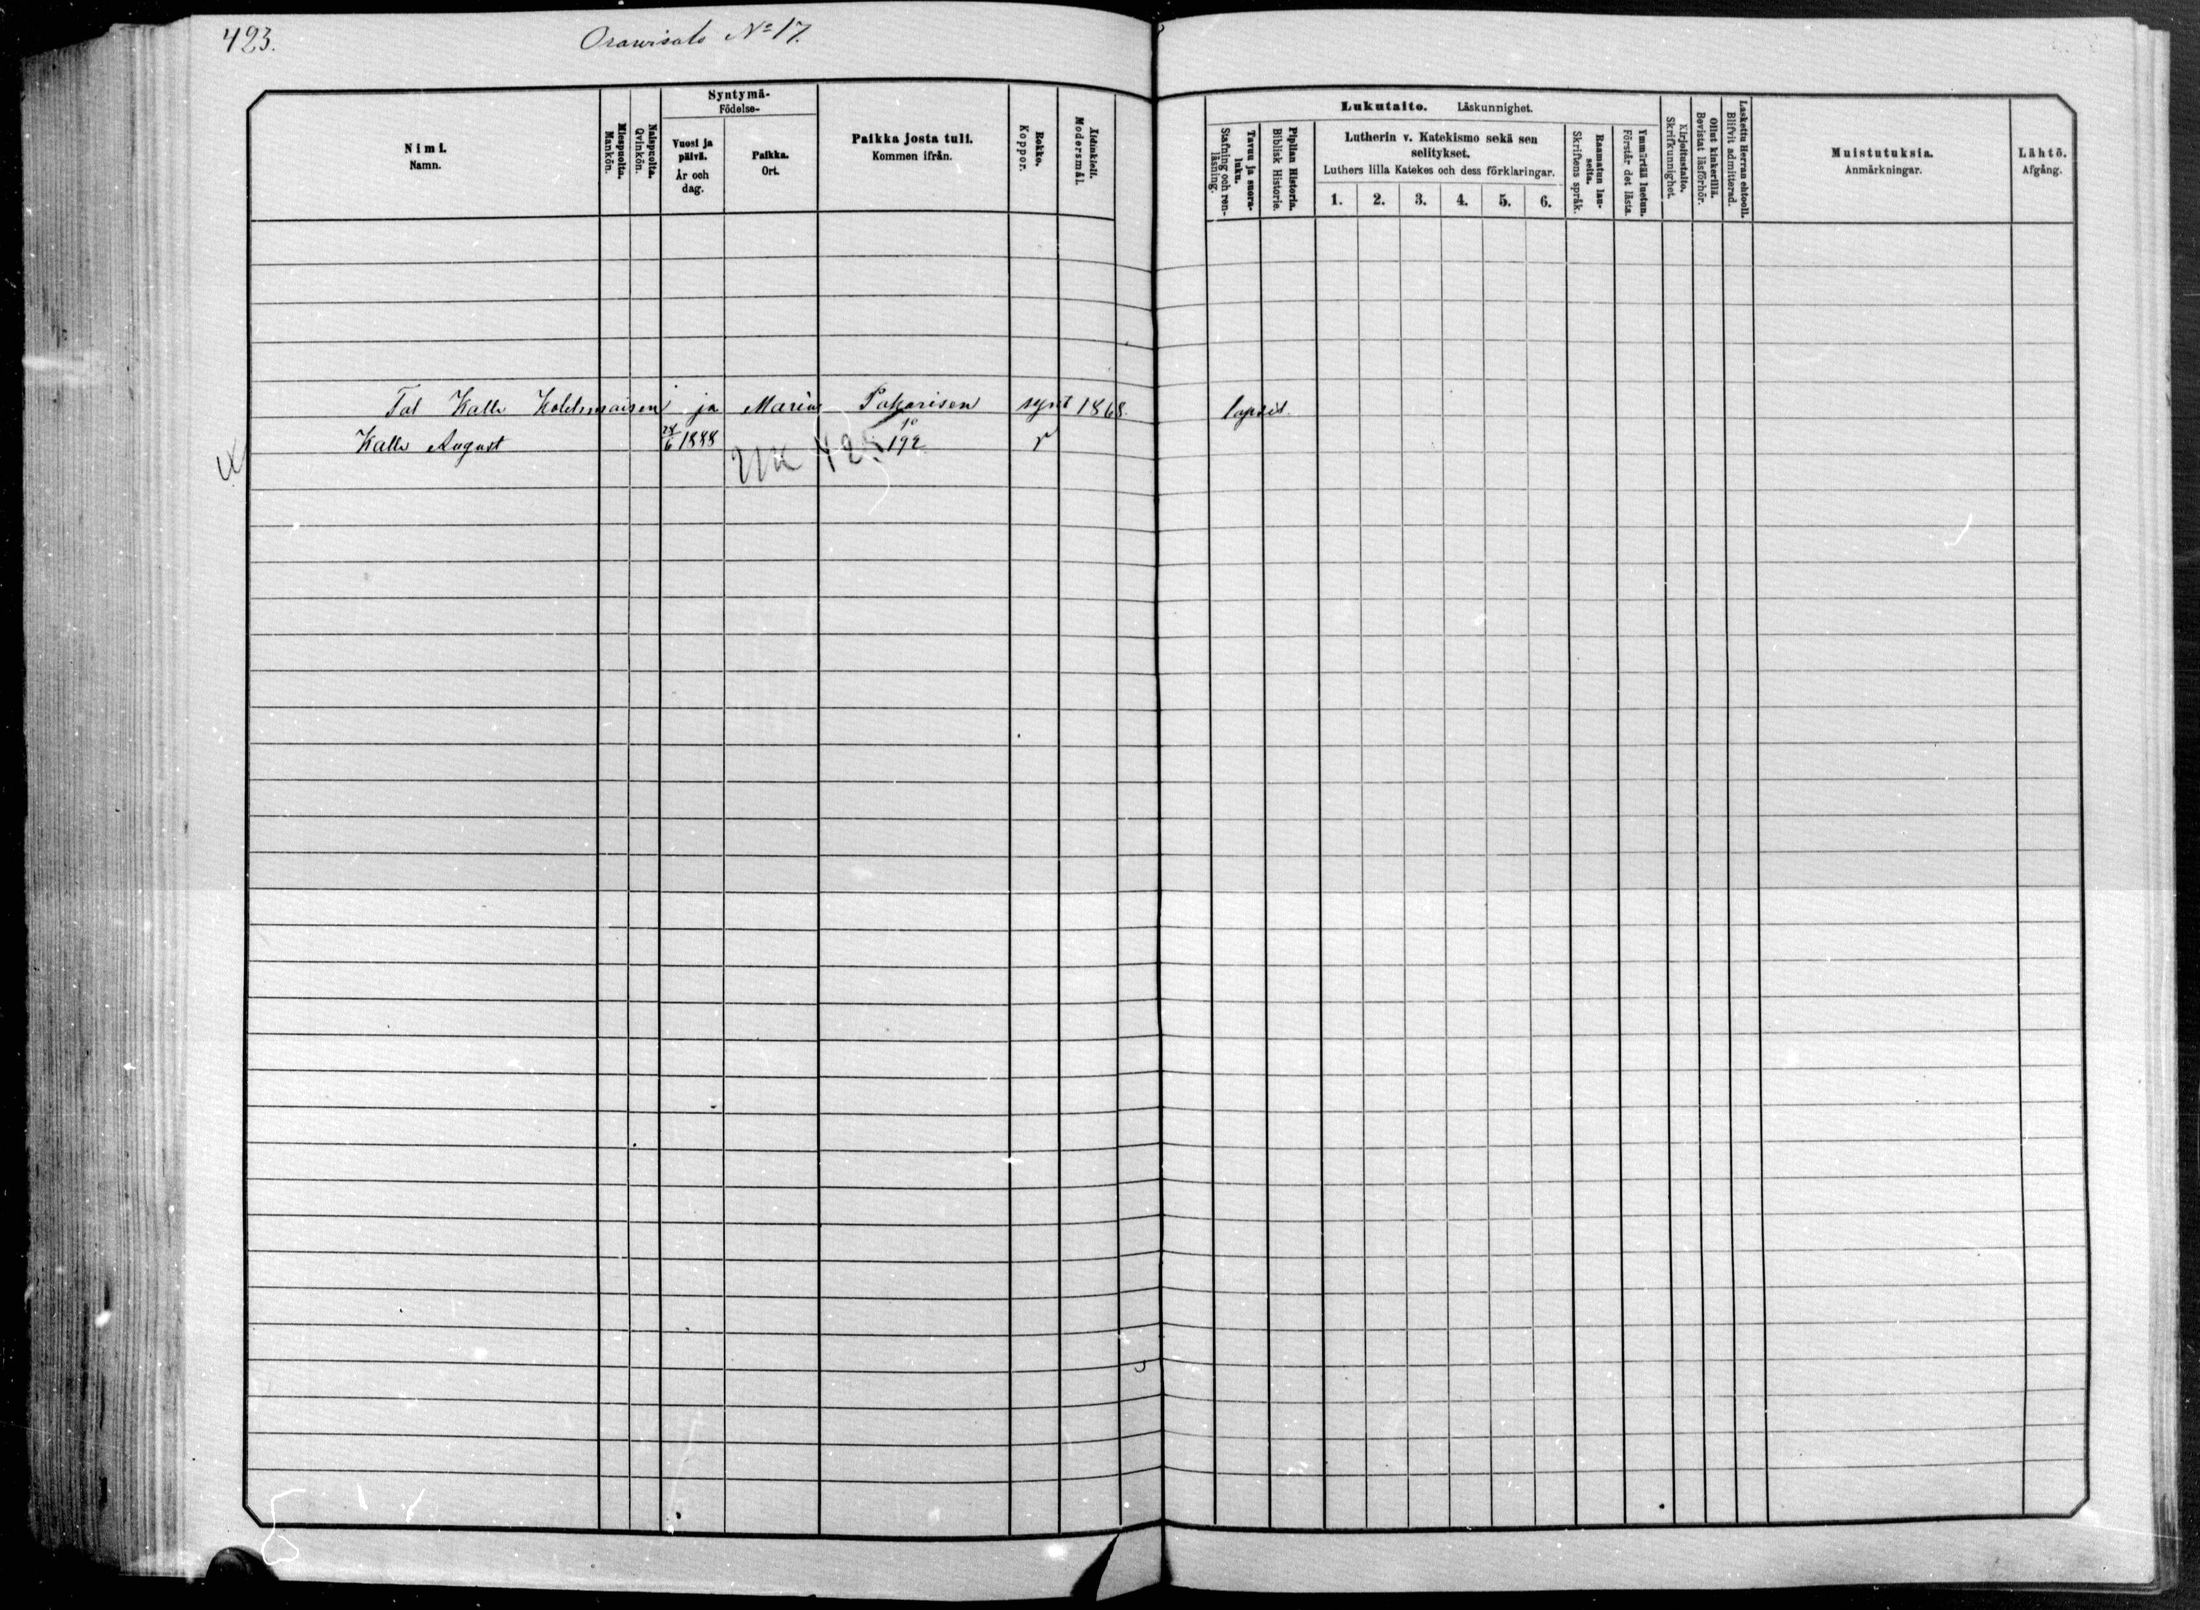 423.
Orawisalo No 17.
Syntymä-
Födelse-
Nimi.
Namn.
Miespuolta.
Mankön.
Naispuolta.
Qvinkön.
Vuosi ja päivä.
År och dag.
Paikka.
Ort.
Paikka josta tuli.
Kommen ifrån.
Rokko.
Koppor.
Äidinkieli.
Modersmål.
Lukutaito. Läskunnighet.
Tavuu ja suora-luku.
Stafning och ren-läsning.
Piplian Historia.
Biblisk Historie.
Lutherin v. Katekismo sekä sen
selitykset.
Luthers lilla Katekes och dess förklaringar.
1. 2. 3. 4. 5. 6.
Raamatun lau-seita.
Skriftens språk.
Ymmärtää luetun.
Förstår det lästa.
Kirjoitustaito.
Skrifkunnighet.
Ollut kinkerillä.
Bevistat läsförhör.
Laskettu Herran ehtooll.
Blifvit admitterad.
Muistutuksia.
Anmärkningar.
Lähtö.
Afgång.
Tal Kalle Kolehmaisen ja Maria Pakarisen synt 1868. lapset.
Kalle August 28/6 1888 192 r
UK 425